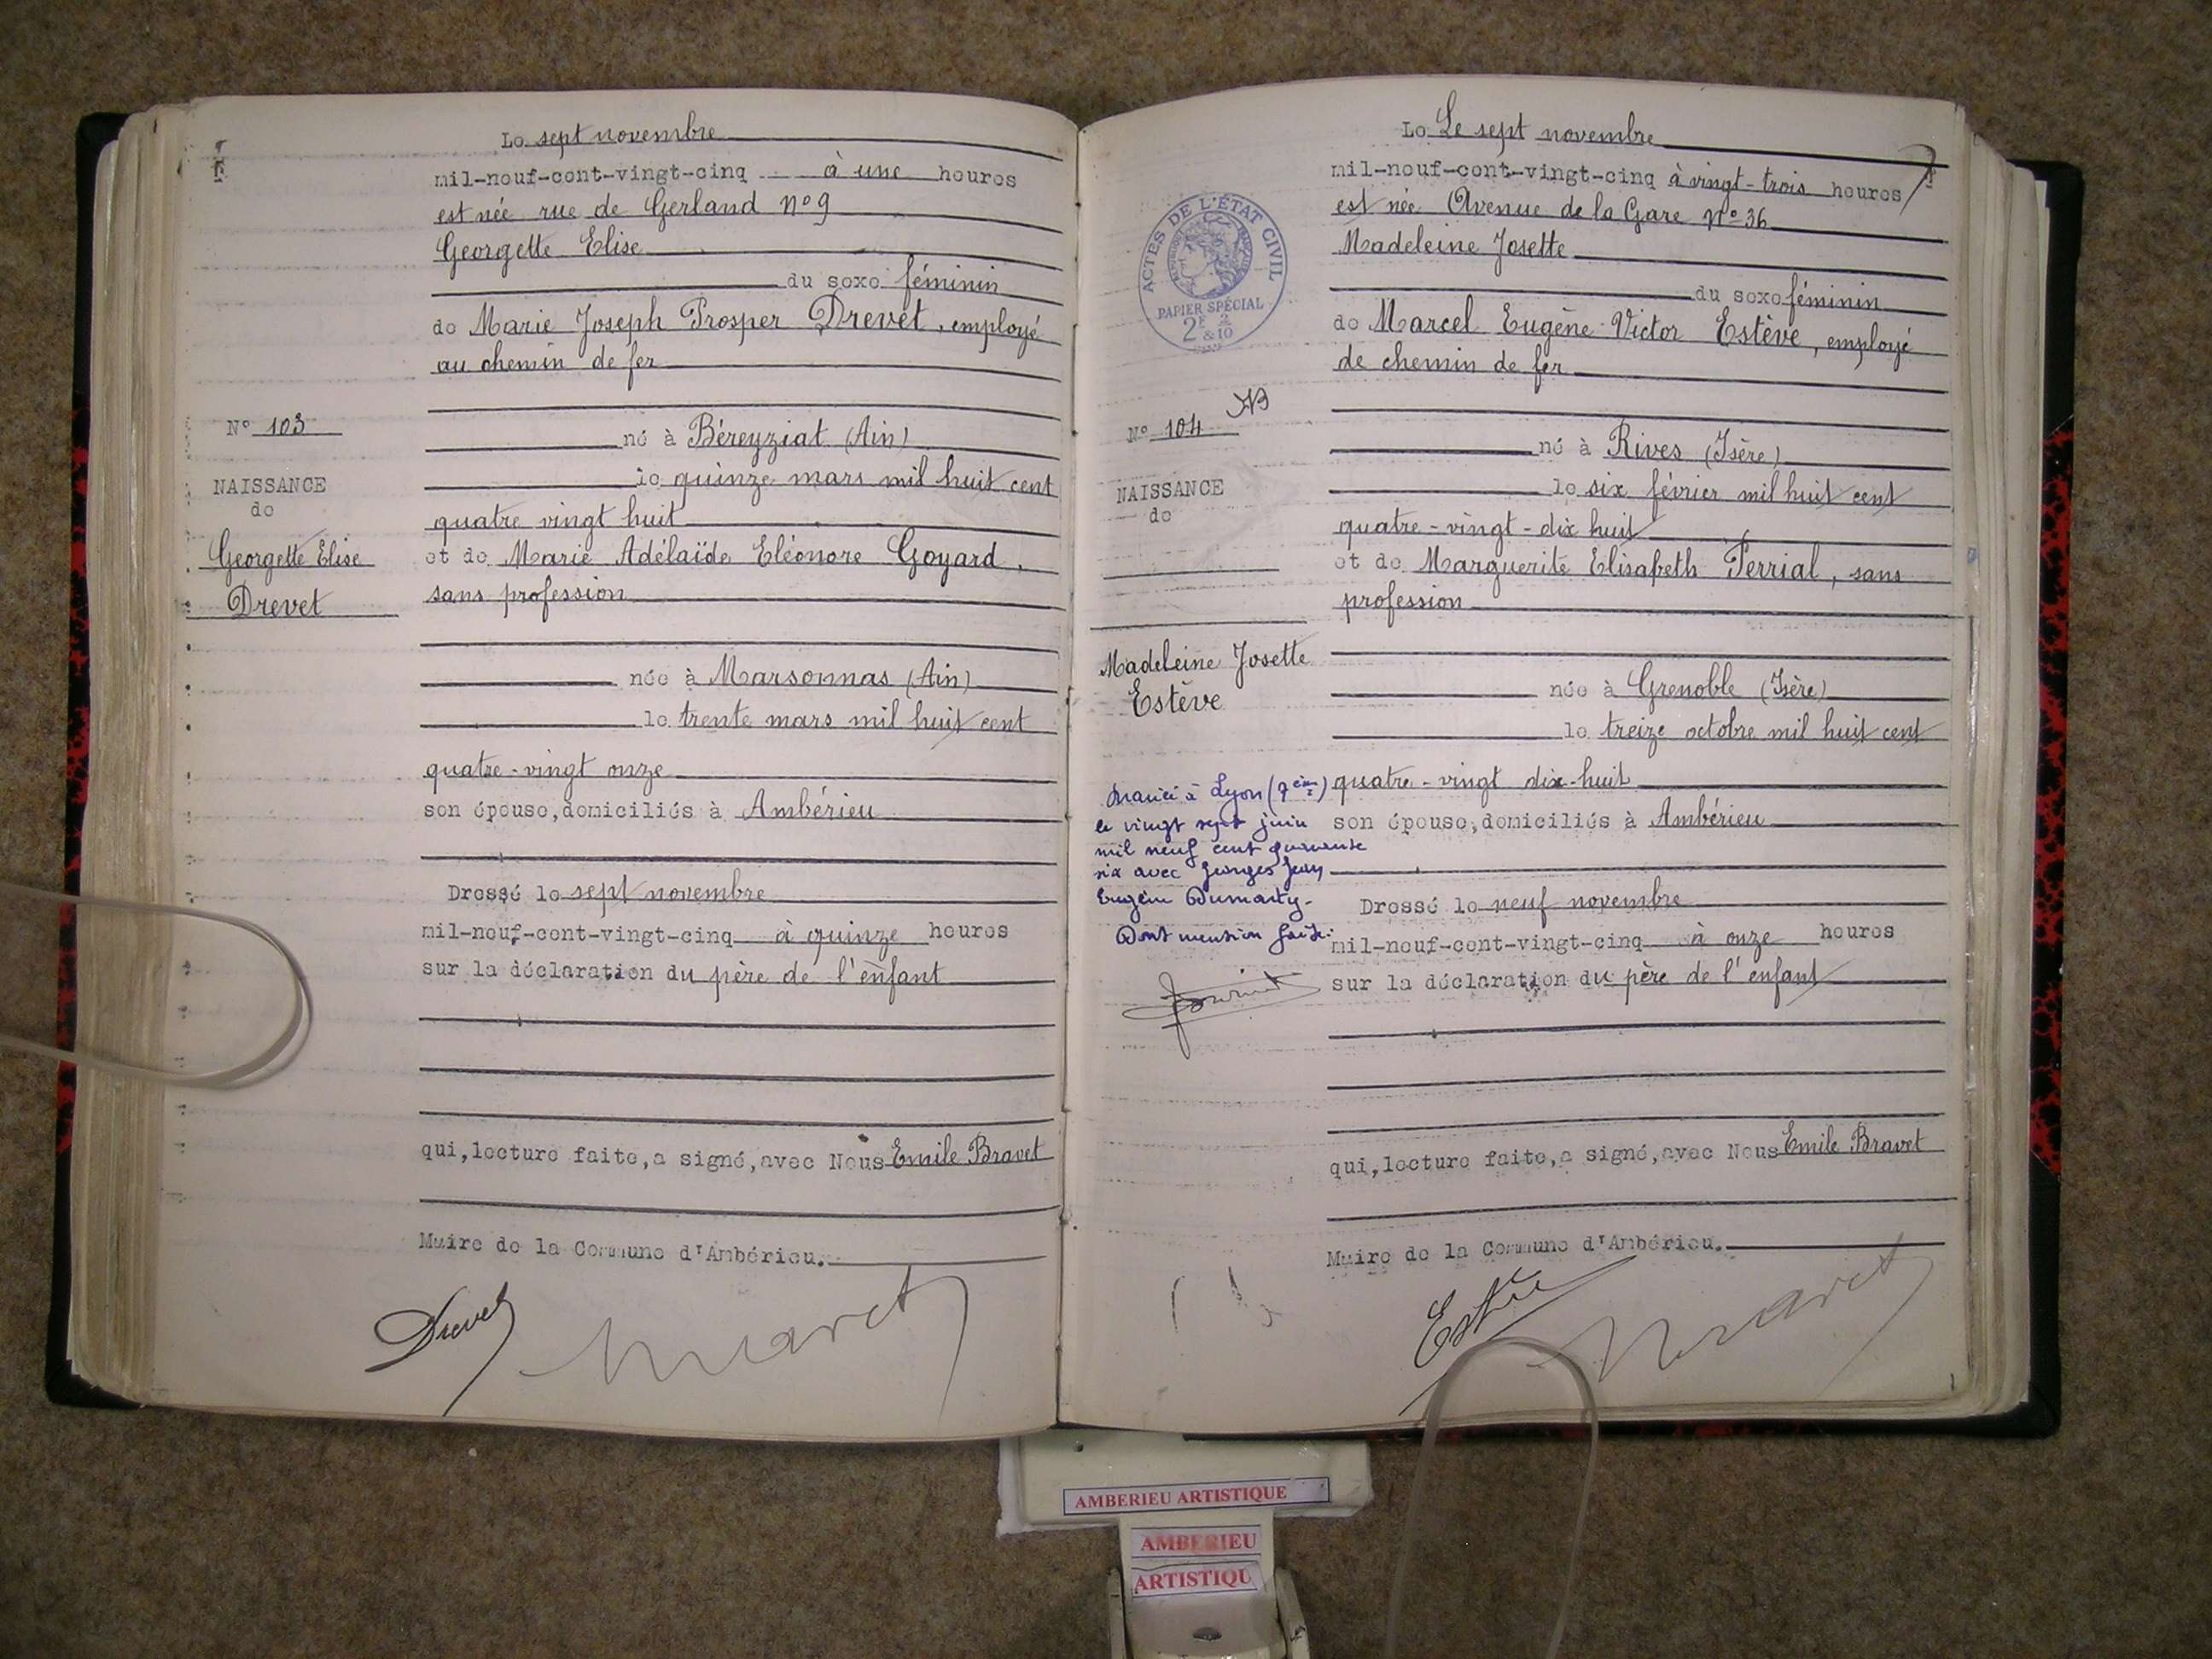 Le sept novembre
mil-neuf-cent-vingt-cinq à une heures
est née rue de Gerland nº 9
Georgette Elise
du sexe féminin
de Marie Joseph Prosper Drevet, employé
au chemin de fer
Nº 103
né à Béreyziat (Ain)
NAISSANCE
de
le quinze mars mil huit cent
quatre vingt huit
Georgette Elise
Drevet
et de Marie Adélaïde Eléonore Goyard,
sans profession
née à Marsonnas (Ain)
le trente mars mil huit cent
quatre-vingt onze
son épouse, domiciliés à Ambérieu
Dressé le sept novembre
mil-neuf-cent-vingt-cinq à quinze heures
sur la déclaration du père de l'enfant
qui, lecture faite, a signé, avec Nous Emile Bravet
Maire de la Commune d'Ambérieu.
Drevet
Le Le sept novembre
mil-neuf-cent-vingt-cinq à vingt-trois heures
est née Avenue de la Gare Nº 36
Madeleine Josette
du sexe féminin
de Marcel Eugène Victor Estève, employé
de chemin de fer
ACTES DE L'ÉTAT CIVIL
PAPIER SPÉCIAL
2F 2/10
&10
Nº 104
né à Rives (Isère)
NAISSANCE
de
le six février mil huit cent
quatre-vingt-dix huit
et de Marguerite Elisabeth Perrial, sans
profession
Madeleine Josette
Estève
née à Grenoble (Isère)
le treize octobre mil huit cent
quatre-vingt dix-huit
son épouse, domiciliés à Ambérieu
Mariée à Lyon
le vingt sept juin
mil neuf cent quarante
six avec Georges Jean
Eugène Dumarty.
Dont mention faite.
Dressé le neuf novembre
mil-neuf-cent-vingt-cinq à onze heures
sur la déclaration du père de l'enfant
qui, lecture faite, a signé, avec Nous Emile Bravet
Maire de la Commune d'Ambérieu.
Estève
AMBERIEU ARTISTIQUE
AMBERIEU
ARTISTIQU